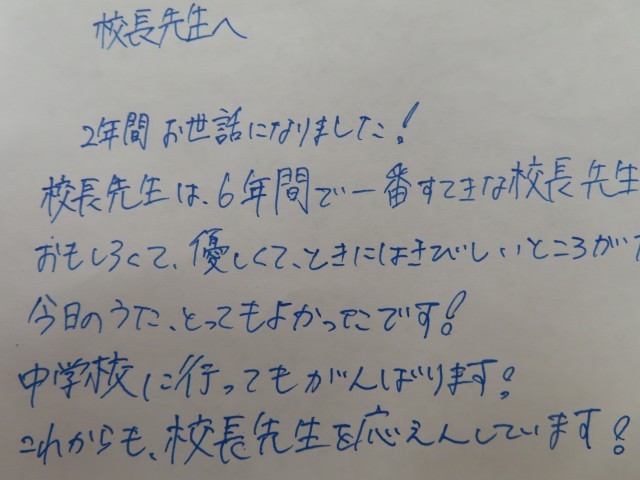 校長先生へ
2年間お世話になりました!
校長先生は、6年間で一番すてきな校長先生
おもしろくて、優しくて、ときにはきびしいところが
今日のうた、とってもよかったです!
中学校に行ってもがんばります!
これからも、校長先生を応えんしています!